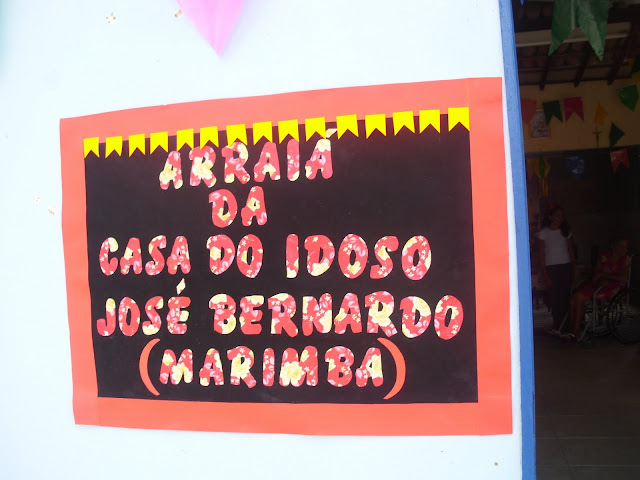 ARRAIÁ
DA
CASA DO IDOSO
JOSÉ BERNARDO
(MARIMBA)